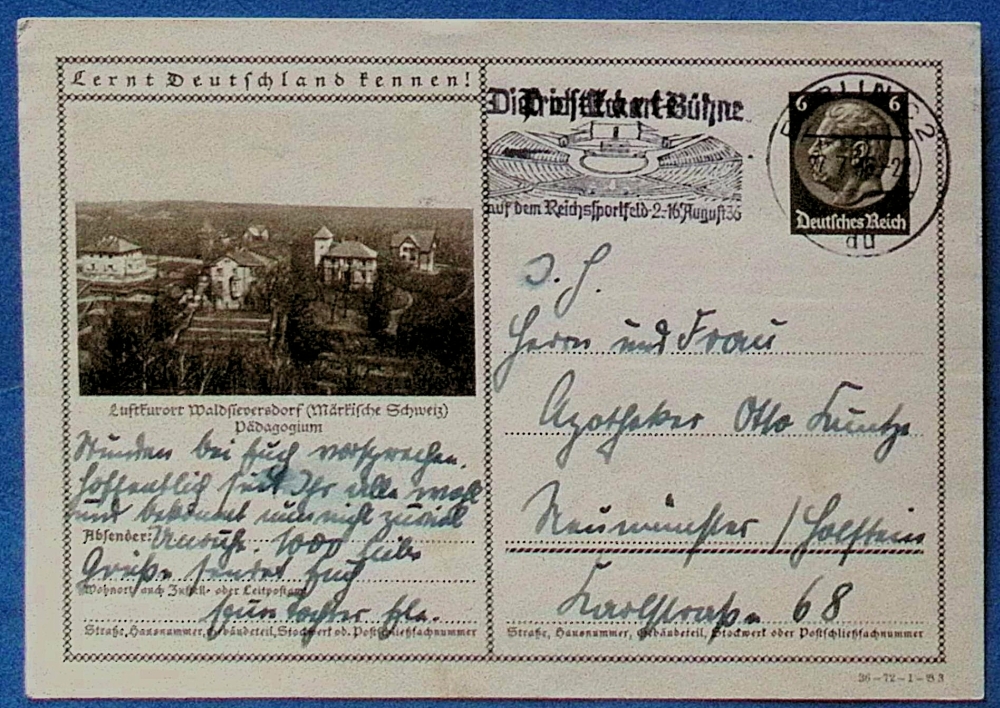 Lernt Deutschland kennen!
Dietrich Eckart-Bühne
auf dem Reichssportfeld 2.-16. August 36
6 6
BERLIN C2
Deutsches Reich
du
Luftkurort Waldsieversdorf (Märkische Schweiz)
Pädagogium
Stunden bei Euch vorsprechen.
Hoffentlich seid Ihr alle wohl
und bekommt nun nicht zuviel
Absender: Unruhe. 1000 liebe
Grüße sendet Euch
Wohnort, auch Zustell- oder Leitpostamt
Eure Tochter
Straße, Hausnummer, Gebäudeteil, Stockwerk od. Postschließfachnummer
Herrn und Frau
Apotheker Otto Kuntze
Neumünster / Holstein
Karlstraße 68
Straße, Hausnummer, Gebäudeteil, Stockwerk oder Postschließfachnummer
36-72-1-B3